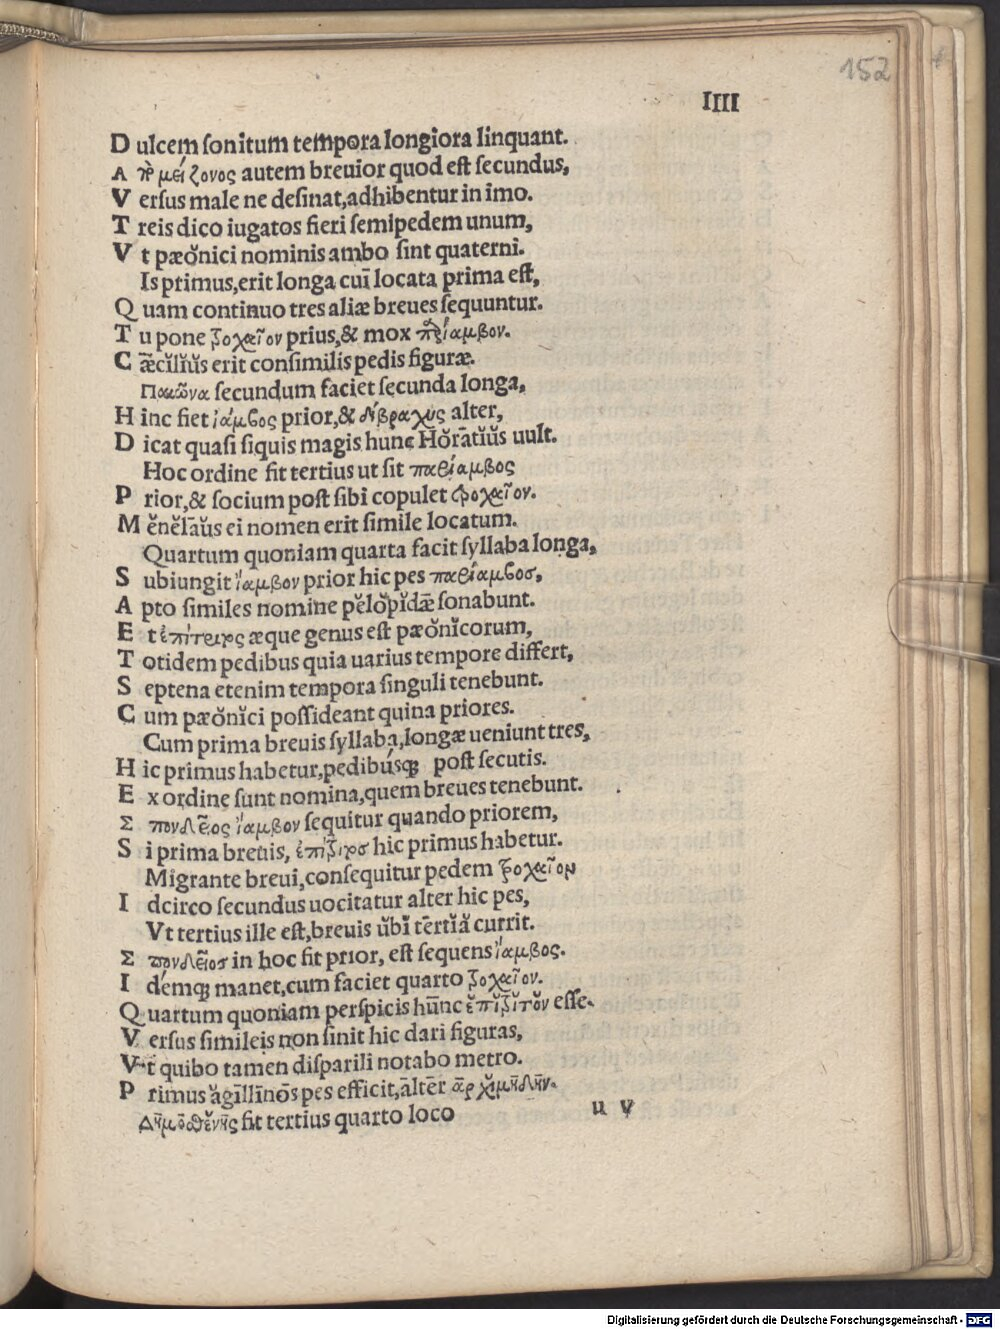 152
IIII
D ulcem ſonitum tempora longiora linquant.
A τ̀ρ μείζονος autem breuior quod eſt ſecundus,
V erſus male ne deſinat,adhibentur in imo.
T reis dico iugatos fieri ſemipedem unum,
V t pæŏnici nominis ambo ſint quaterni.
Is primus,erit longa cui locata prima eſt,
Q uam continuo tres aliæ breues ſequuntur.
T u pone τροχαῖον prius,& mox
C æ̅cĭlĭŭs erit conſimilis pedis figuræ.
Παιῶνα ſecundum faciet ſecunda longa,
H inc fiet ἰάμβος prior,& δίβραχὺς alter,
D icat quaſi ſiquis magis hunc Hŏrātĭŭs uult.
Hoc ordine fit tertius ut ſit παρίαμβος
P rior,& ſocium poſt ſibi copulet τροχαῖον.
M ĕnĕlāŭs ei nomen erit ſimile locatum.
Quartum quoniam quarta facit ſyllaba longa,
S ubiungit ἴαμβον prior hic pes παρίαμβοσ,
A pto ſimiles nomine pĕlŏpĭdæ̅ ſonabunt.
E t ἐπίτριτος æque genus eſt pæŏnĭcorum,
T otidem pedibus quia uarius tempore differt,
S eptena etenim tempora ſinguli tenebunt.
C um pæŏnĭci poſſideant quina priores.
Cum prima breuis ſyllaba,longæ ueniunt tres,
H ic primus habetur,pedibúsqꝫ poſt ſecutis.
E x ordine ſunt nomina,quem breues tenebunt.
Σ πονδεῖος ἴαμβον ſequitur quando priorem,
S i prima breuis, ἐπίτριτοσ hic primus habetur.
Migrante breui,conſequitur pedem τροχαῖον
I dcirco ſecundus uocitatur alter hic pes,
Vt tertius ille eſt,breuis ŭbĭ tērtĭă currit.
Σ πονδεῖοσ in hoc fit prior, eſt ſequens ἴαμβος.
I démqꝫ manet,cum faciet quarto τροχαῖον.
Q uartum quoniam perſpicis hūnc ἐπίτριτον eſſe.
V erſus ſimileis non ſinit hic dari figuras,
V t quibo tamen diſparili notabo metro.
P rimus ăgīllīnōs pes efficit,āltĕr ἀρχιμήδην.
Δημοσθένης fit tertius quarto loco
u v
Digitalisierung gefördert durch die Deutsche Forschungsgemeinschaft - DFG